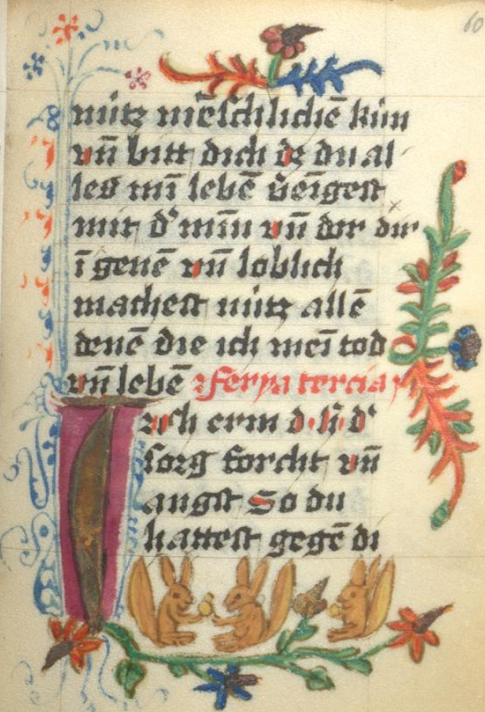 60
nütz mēschlichē kün
vn̄ bitt dich dz du al
les mī lebē v̄eīgest
mit dʼ mīn vn̄ dar dur
ī genē vn̄ loblich
machest nütz allē
denē die ich meī tod
vn̄ lebē Ferya tercia
Ich erm d h dʼ
sorg forcht vn̄
angst So du
hattest gegē di